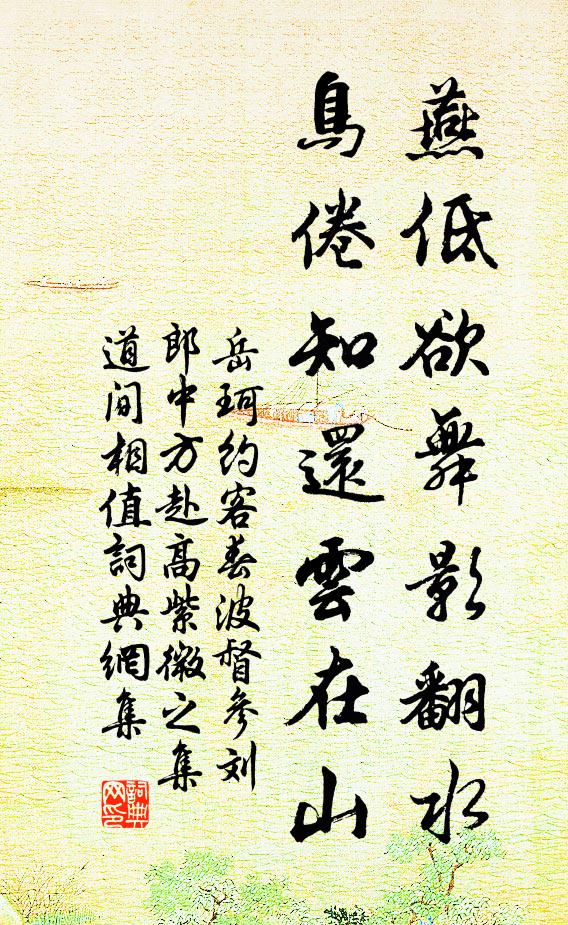 燕低欲舞影翻水
鳥倦知還雲在山
岳珂約客春波督參刘
郎中方赴高紫微之集
道間相值詞典網集
詞典
网印